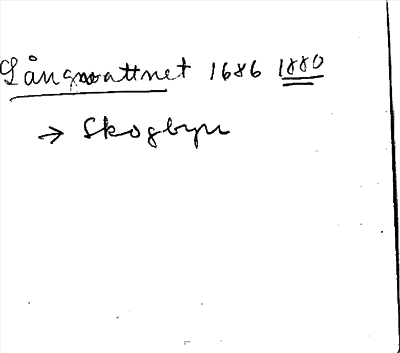 Långwattnet 1686 1880
→ Skogbyn